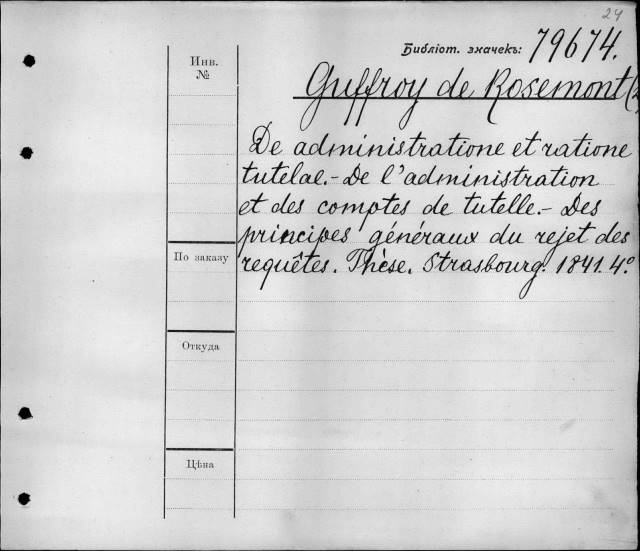 24
Библіот. значекъ: 79674.
Инв.
№
Guffroy de Rosemont
De administratione et ratione
tutelae.- De l'administration
et des comptes de tutelle.- Des
principes généraux du rejet des
requêtes. Thèse. Strasbourg. 1841. 4°
По заказу
Откуда
Цѣна